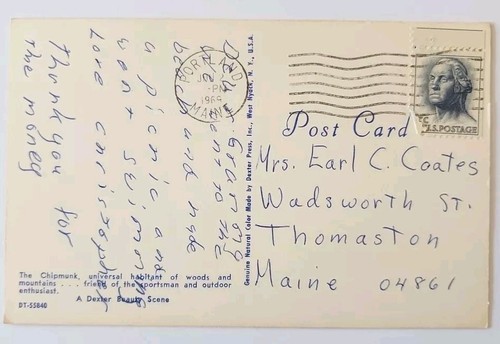 Grammy
went to the
beach and made
a picnic and
went swimming
Love Christopher
Thank you for
the money
PORTLAND
PM
1965
MAINE
U.S. POSTAGE
Post Card
Mrs. Earl C. Coates
Wadsworth St.
Thomaston
Maine 04861
Genuine Natural Color Made by Dexter Press, Inc., West Nyack, N. Y., U.S.A.
The Chipmunk, universal habitant of woods and
mountains . . . friend of the sportsman and outdoor
enthusiast.
A Dexter Beauty Scene
DT-55840